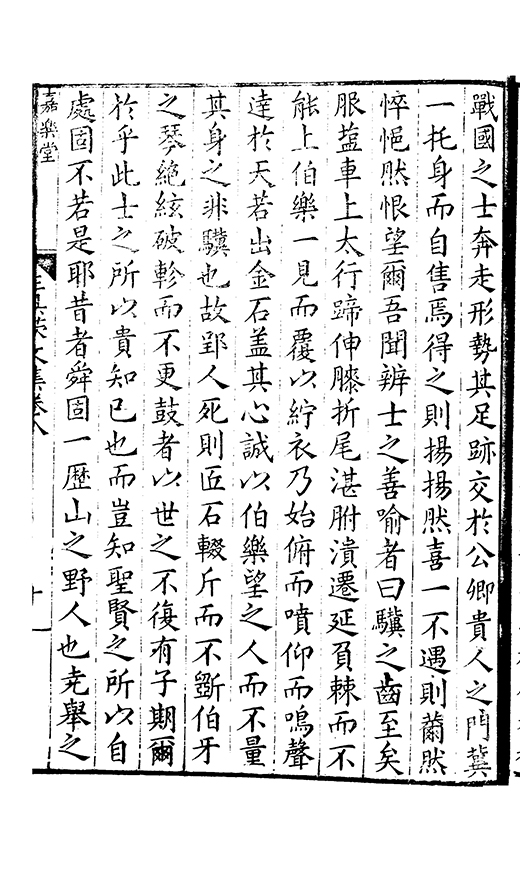 戰國之士奔走形勢其足跡交於公卿貴人之門冀
一托身而自售焉得之則揚揚然喜一不遇則薾然
悴悒然恨望爾吾聞辨士之善喻者曰驥之齒至矣
服鹽車上太行蹄伸膝折尾湛胕潰遷延負棘而不
能上伯樂一見而覆以紵衣乃始俯而噴仰而鳴聲
達於天若出金石盖其心誠以伯樂望之人而不量
其身之非驥也故郢人死則匠石輟斤而不斵伯牙
之琴絶絃破軫而不更鼓者以世之不復有子期爾
於乎此士之所以貴知已也而豈知聖賢之所以自
處固不若是耶昔者舜固一歷山之野人也堯舉之
嘉樂堂
文集卷八
十一